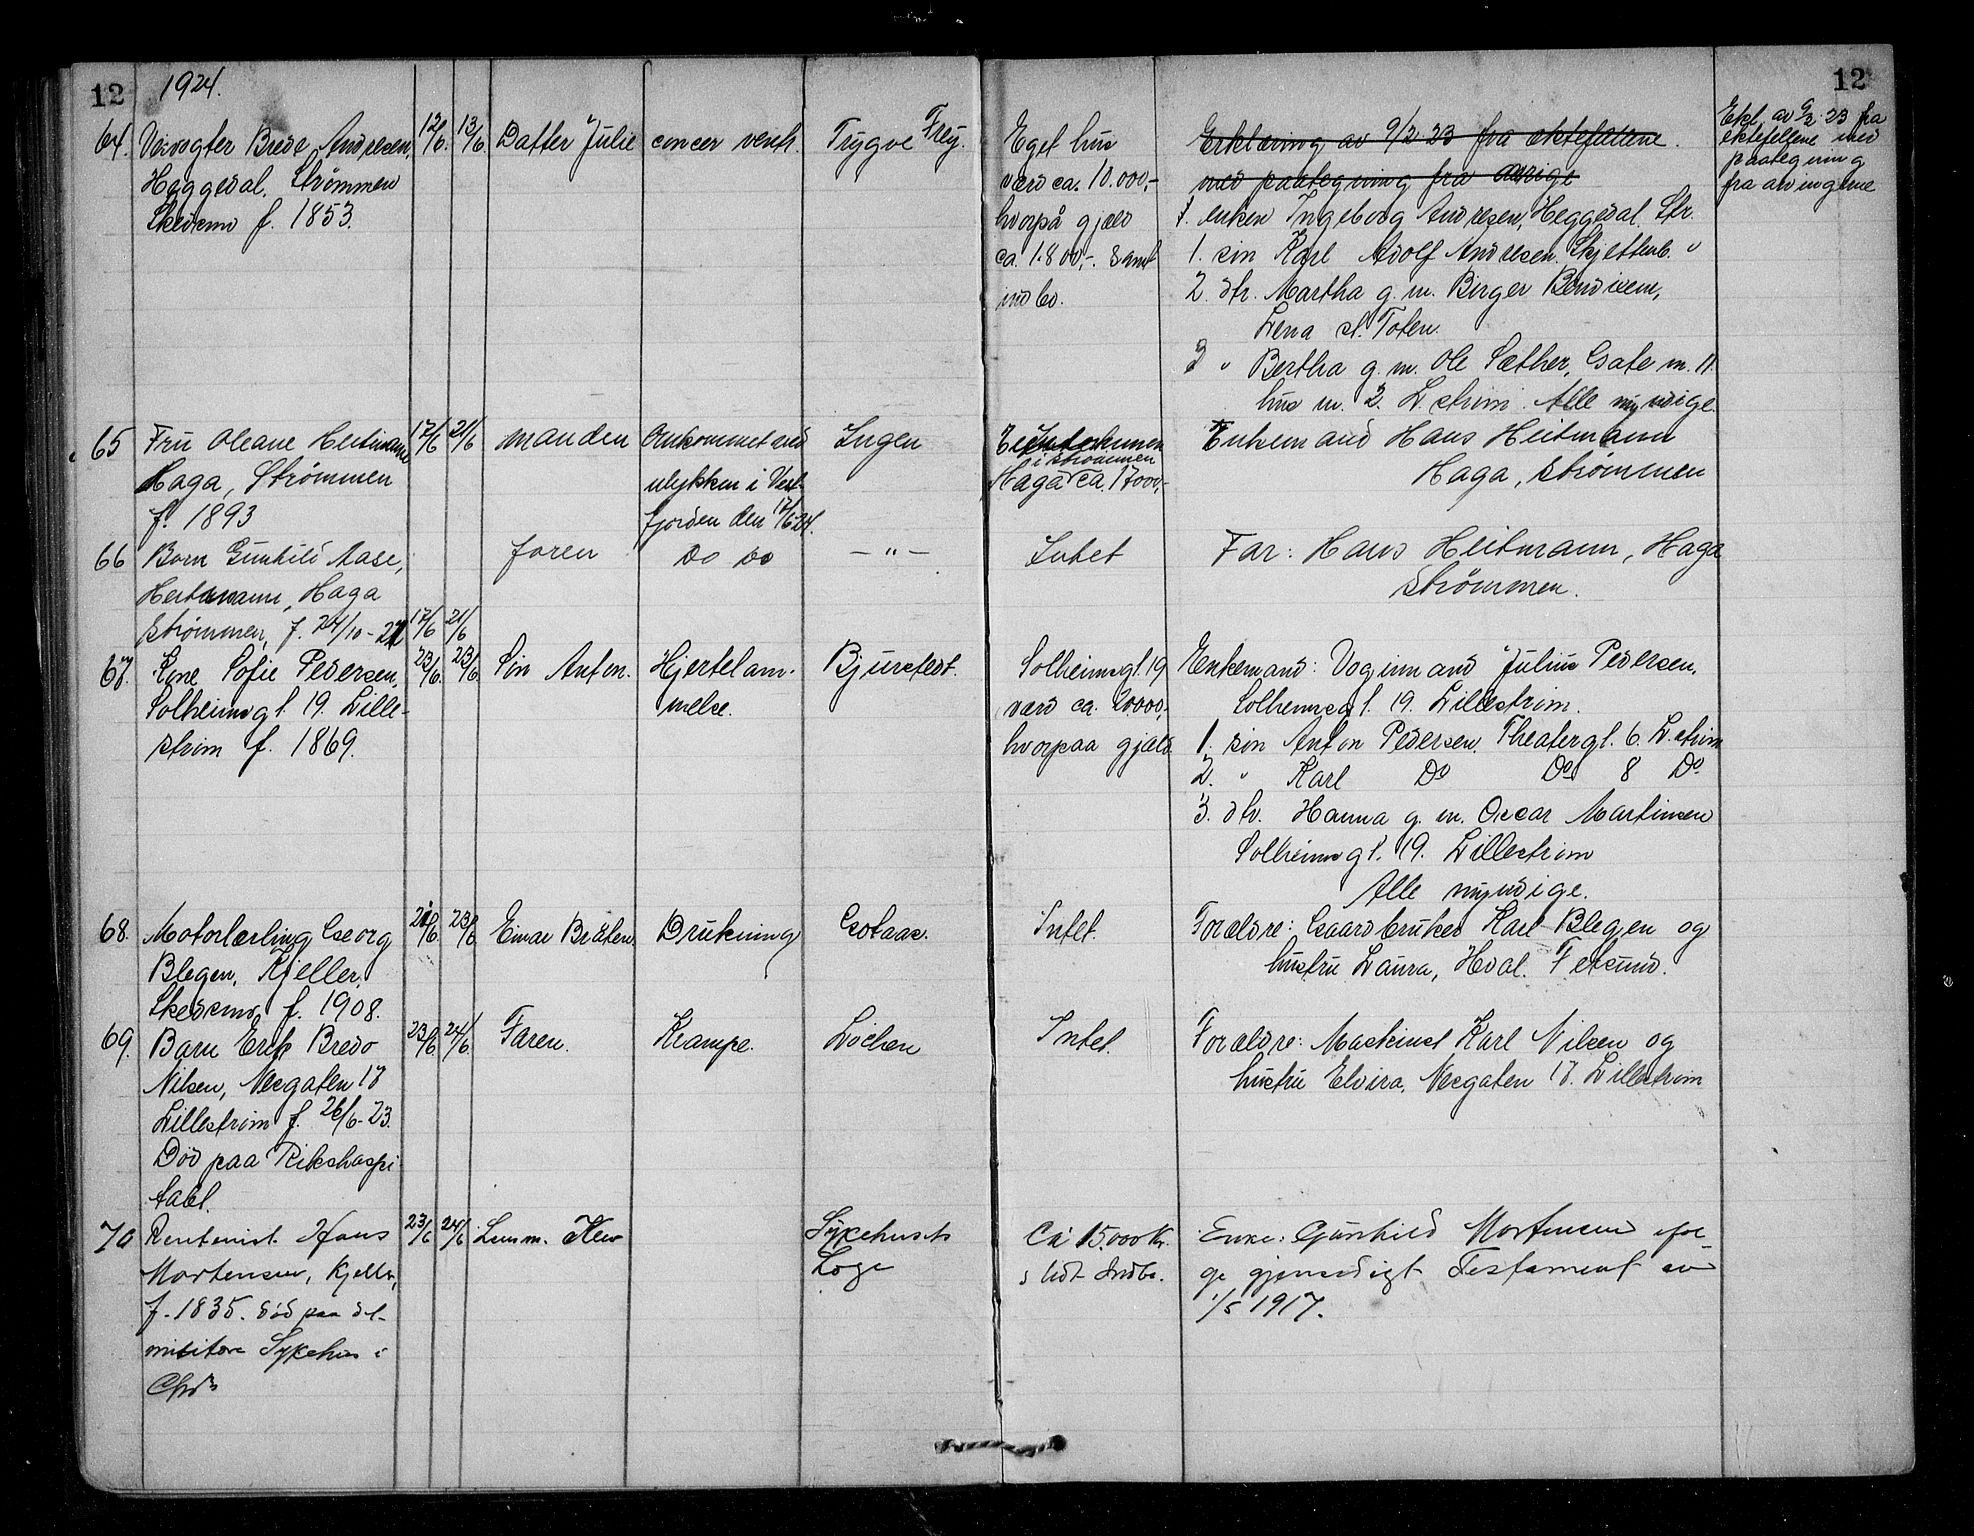 12 1924. 12
64. Veivogter Brede Andresen, 12/6. 13/6 Datter Julie cancer ventr. Trygve Frey.
Heggedal, Strømmen
Skedsmo f. 1853.
Eget hus
værd ca. 10.000,-
hvorpå gjæld
ca. 1800,-. Samt
indbo.
Erklæring av 9/2 23 fra ektefellene.
med paategning fra
1. enken Ingeborg Andresen, Heggedal, Str.
1. søn Karl Adolf Andresen. Skjettenb. "
2. dtr. Martha g. m. Birger Bendixen,
Lena st. Toten.
3 " Bertha g. m. Ole Sæther, Gate m. 11.
hus m. 2. L.strøm. Alle myndige.
Ekl. av 9/2. 23 fra
ektefellene med
paategning
fra arvingene
65 Fru Oleane Heitmann 17/6 21/6 manden Omkommet ved Ingen
Haga, Strømmen ulykken i Vest-
f. 1893 fjorden den 17/6 24.
i Strømmen
Haga ca. 17000,-
Enkemand Hans Heitmann
Haga, Strømmen
66 Barn Gunhild Aase, faren Do Do — " — Intet Far: Hans Heitmann, Haga
Heitmann, Haga Strømmen.
Strømmen, f. 24/10 - 21 17/6 21/6
67. Kone Sofie Pedersen, 23/6. 23/6. Søn Anton. Hjertelam- Bjursted.
Solheimsgt. 19. Lille- melse.
strøm f. 1869.
Solheimsgt. 19
værd ca. 20.000,-
hvorpaa gjæld
Enkemand: Vognmand Julius Pedersen,
Solheimsgt. 19. Lillestrøm.
1. søn Anton Pedersen. Theatergt. 6. L.strøm
2. " Karl Do Do 8 Do
3. dtr. Hanna g. m. Oscar Martinsen
Solheimsgt. 19. Lillestrøm
Alle myndige.
68. Motorlærling Georg 21/6. 23/6 Einar Bråten Drukning Gotaas. Intet. Forældre: Gaardbruker Karl Blegen og
Blegen, Kjeller, hustru Laura, Hval. Fetsund.
Skedsmo, f. 1908.
69. Barn Erik Bredo 23/6. 24/6. Faren. Krampe. Lochen Intet. Forældre: Maskinist Karl Nilsen og
Nilsen, Nesgaten 17 hustru Elvira, Nesgaten 17. Lillestrøm
Lillestrøm f. 26/6- 23.
Død paa Rikshospi
talet.
70 Rentenist. Hans 23/6 24/6 Lensm. Sykehusets Ca 15.000 kr. Enke: Gunhild Mortensen iføl-
Mortensen, Kjeller, Læge s lidt Indbo. ge gjensidigt Testament av
f. 1835. død paa det 1/5 1917.
militære Sykehus i
Chra